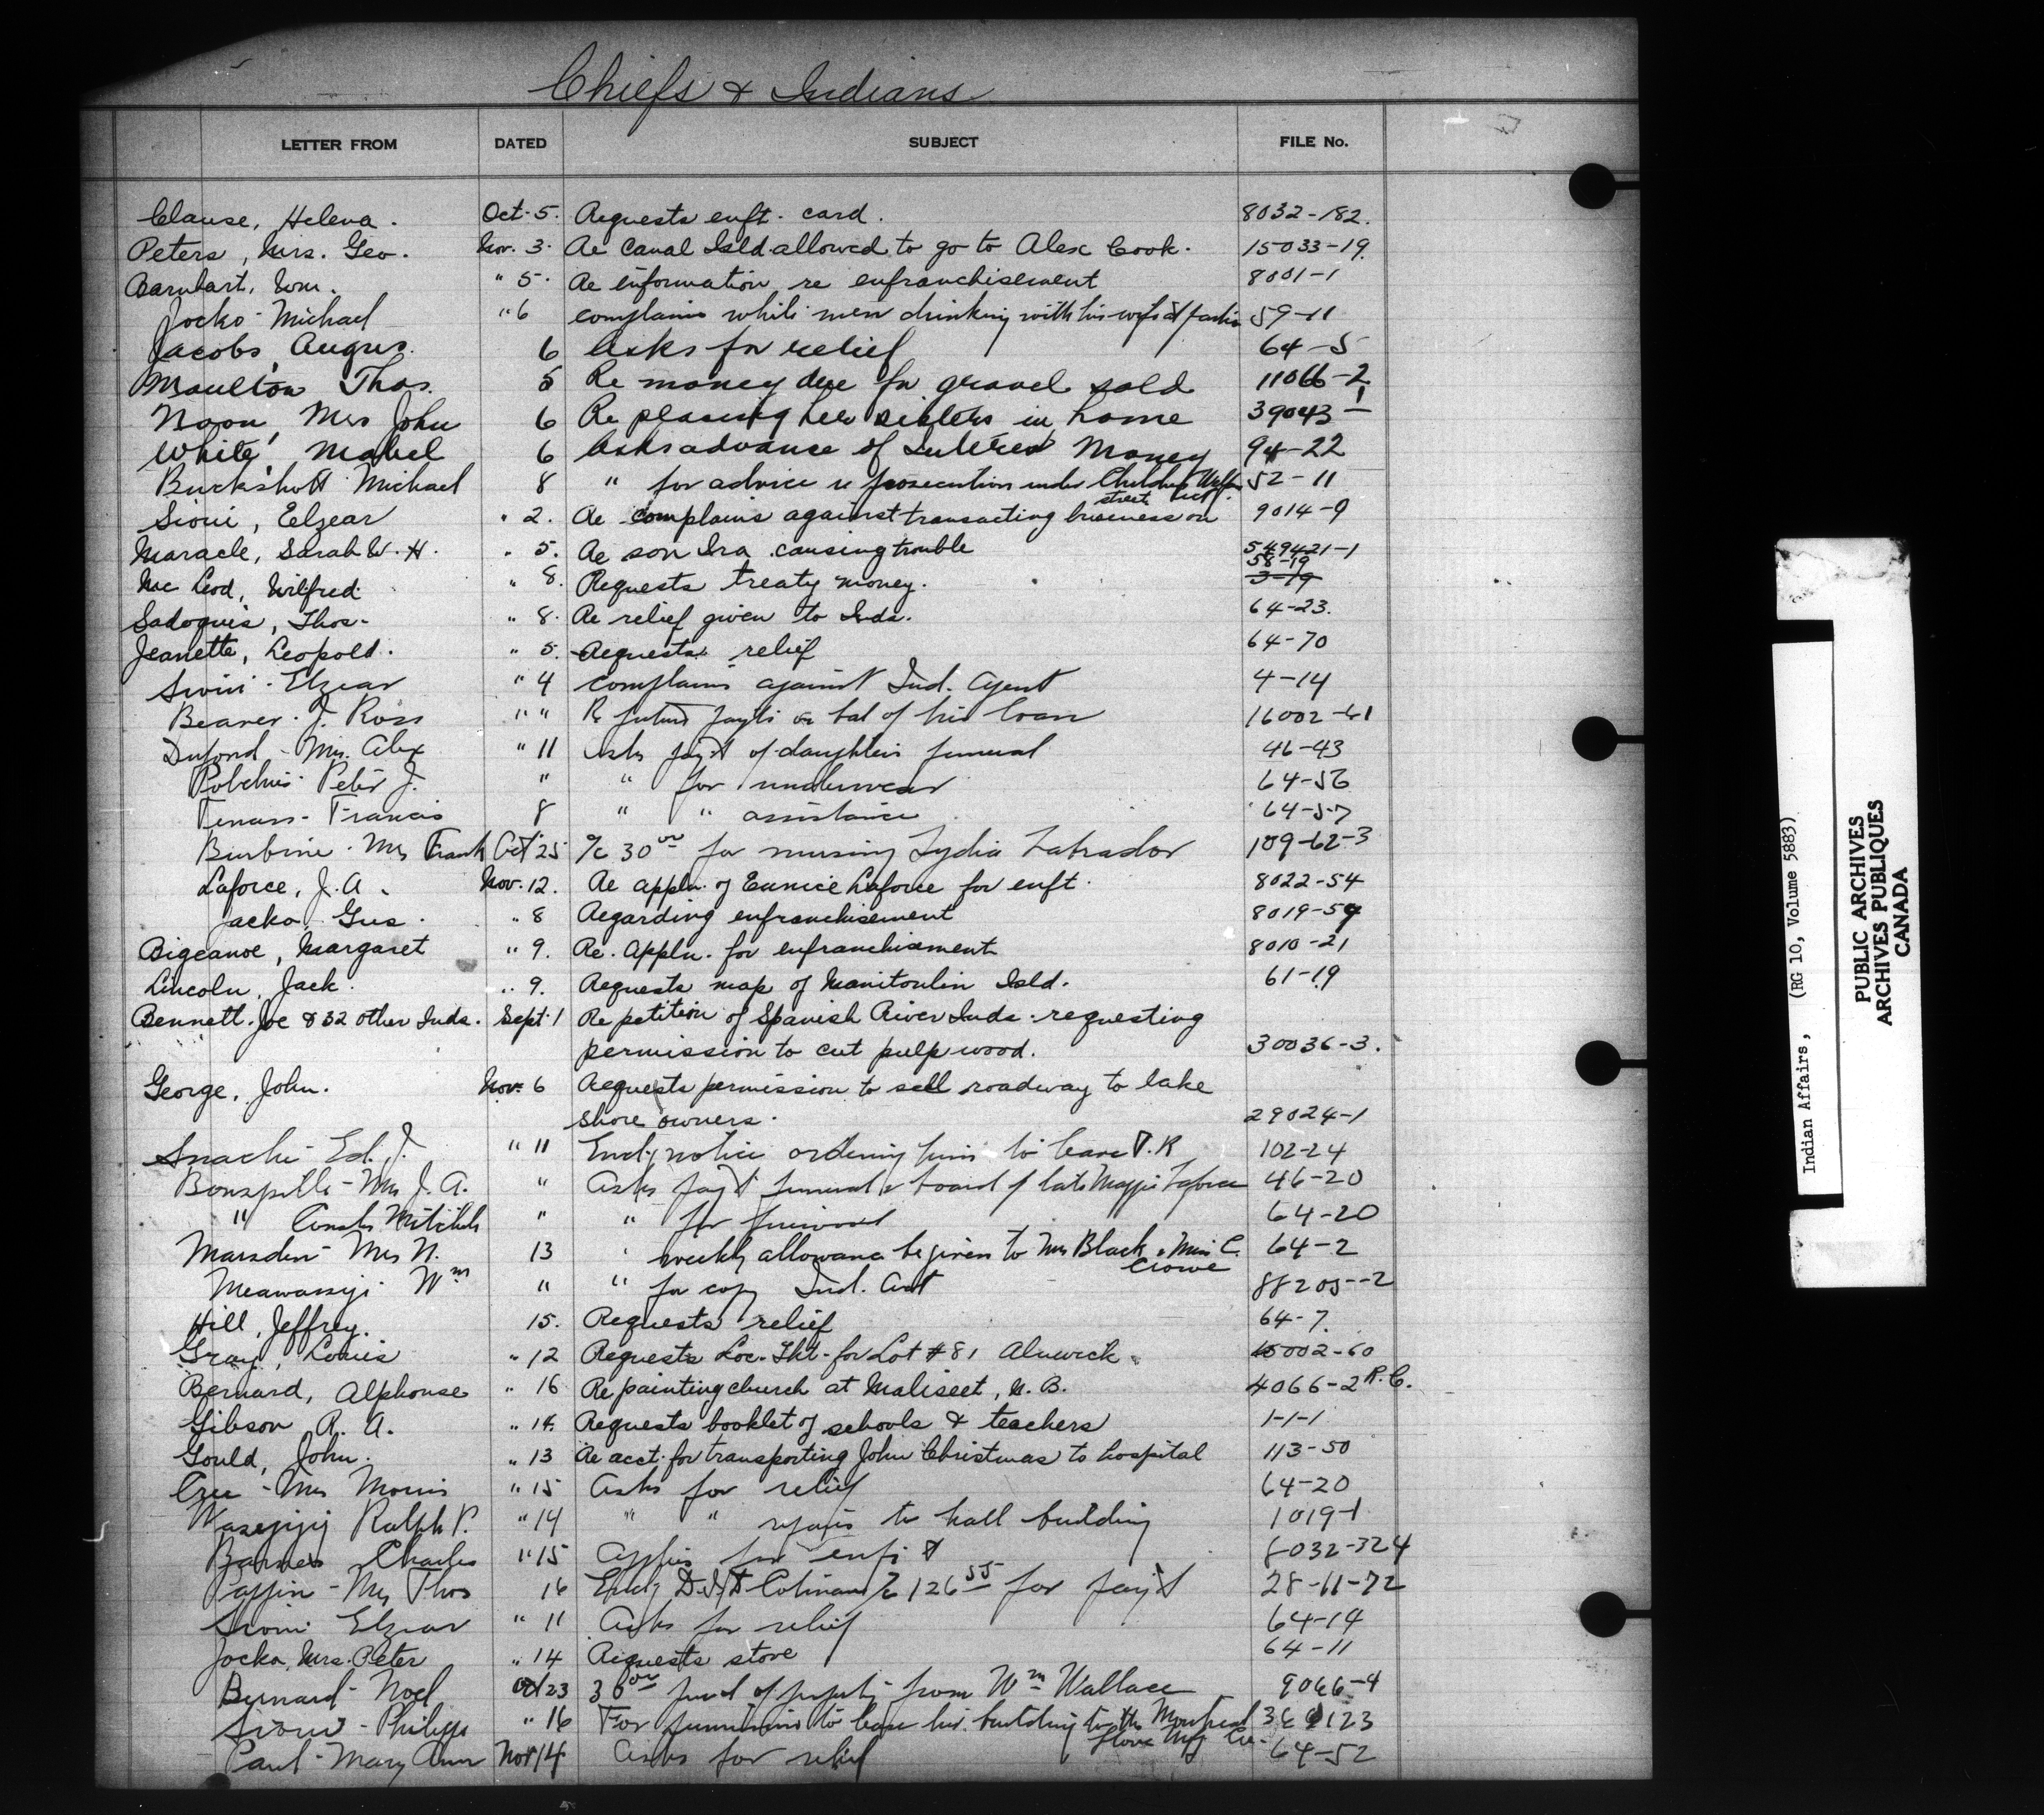 Chiefs & Indians
LETTER FROM DATED SUBJECT FILE No.
Clause, Helena. Oct. 5. Requests enft. card. 8032-182.
Peters, Mrs. Geo. Nov. 3. Re Canal Isld. allowed to go to Alex Cook. 15033-19.
Barnhart, Wm. " 5. Re information re enfranchisement 8001-1
Jocko - Michael " 6 complains white men drinking with his wife & 59-11
Jacobs, Angus. 6 Asks for relief 64-5
Moulton Thos. 5 Re money due for gravel sold 11066-2
Noon, Mrs John 6 Re placing her sisters in home 39043-1
White, Mabel 6 Asks advance of Interest Money 94-22
Buckshott Michael 8 " for advice re prosecution under Childrens Welfare Act. 52-11
Sioui, Elzear " 2. Re complains against transacting business on street 9014-9
Maracle, Sarah W. H. " 5. Re son Ira causing trouble 549421-1
Mc Leod, Wilfred. " 8. Requests treaty money. 58-19 3-19
Sadoquis, Thos. " 8. Re relief given to Inds. 64-23.
Jeanette, Leopold. " 5. Requests relief 64-70
Sioui - Elzear " 4 complains against Ind. Agent 4-14
Beaver - J. Ross " " Re future payts on bal of his loan 16002-61
Dufond - Mrs. Alex " 11 Asks payt of daughters funeral 46-43
Peter J. " " for underwear 64-56
Tenass - Francis 8 " " assistance 64-57
Burbine - Mrs Frank Oct 25 a/c 30 00 for nursing Lydia Labrador 109-62-3
Laforce, J. A. Nov. 12. Re appln. of Eunice Laforce for enft. 8022-54
Jacko, Gus. " 8 Regarding enfranchisement 8019-54
Bigcanoe, Margaret " 9. Re. Appln. for enfranchisement 8010-21
Lincoln, Jack. " 9. Requests map of Manitoulin Isld. 61-19
Bennett. Joe & 32 other Inds. Sept. 1 Re petition of Spanish River Inds. requesting
permission to cut pulp wood. 30036-3.
George, John. Nov. 6 Requests permission to sell roadway to lake
shore owners. 29024-1
Snache - Ed. J. " 11 Encl. notice ordering him to leave I.R 102-24
Bonspille - Mrs J. A. " Asks payt funeral & board of late Maggie Laforce 46-20
" " " for firewood 64-20
Marsden - Mrs N. 13 " weekly allowance be given to Mrs Black & Miss C. Crowe 64-2
Meawassige Wm " " for copy Ind. Act 88205--2
Hill, Jeffrey. 15. Requests relief 64-7.
Gray, Louis " 12 Requests Loc. Tkt. for Lot #81 Alnwick. 15002-60
Bernard, Alphonse " 16 Re painting church at Maliseet, N. B. 4066-2 R.C.
Gibson R. A. " 14. Requests booklet of schools & teachers 1-1-1
Gould, John. " 13 Re acct. for transporting John Christmas to hospital 113-50
Cree - Mrs Morris " 15 Asks for relief 64-20
Ralph P. " 14 " " repairs to hall building 1019-1
Barnes Charles " 15 Applies for enft 8032-324
Mrs Thos 16 Encl a/c 126 55 for payt 28-11-72
Sioui Elzear " 11 Asks for relief 64-14
Jocko, Mrs. Peter " 14 Requests stove 64-11
Bernard - Noel Oct 23 of property from Wm Wallace 9066-4
Sioui - Philippe " 16 For permission to lease his building to the Montreal Glove Mfg Co.
Paul - Mary Ann Nov 14 Asks for relief 64-52
Indian Affairs, (RG 10, Volume 5883)
PUBLIC ARCHIVES
ARCHIVES PUBLIQUES
CANADA